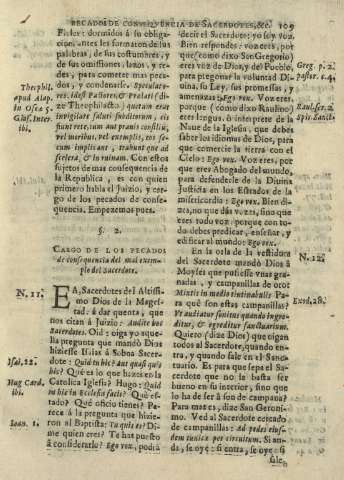 PECADOS DE CONSEQUENCIA DE SACERDOTES, &c. 109
Pastor: dormados à su obliga-
cion antes les formaron de las
palabras, de sus costumbres, y
de sus omisiones, lazos, y re-
des, para cometer mas peca-
dos, y condenarse. Speculato-
res, idest Pastores, & Prælati (di-
ze Theophilacto) quotam erat
invigilare saluti subditorum, eis
sunt rete, tum aut pravis consiliis,
vel moribus, vel exemplis, eos se-
cum implicant, trahunt que ad
scelera, & in ruinam. Con estos
sujetos de mas consequencia de
la Republica, es con quien
primero habla el Juizio, y car-
go de los pecados de conse-
quencia. Empezemos pues.
Theophil.
apud Alap.
in Osee 5.
Glos. Inter.
ibi.
§. 2.
CARGO DE LOS PECADOS
de consequencia del mal exem-
plo del Sacerdote.
N. 11.
EA, Sacerdotes del Altissi-
mo Dios de la Mages-
tad, à dar quenta, que
nos citan à Juizio: Audite hoc
Sacerdotes. Oid: oiga yo aque-
lla pregunta que mandò Dios
hiziesse Isaias à Sobna Sacer-
dote: Quid tu hic? aut quasi quis
hic? Què es lo que hazes en la
Catolica Iglesia? Hugo: Quid
tu hic in Ecclesia facis? Què es-
tado? Què oficio tienes? Pa-
rece à la pregunta que hizie-
ron al Baptista: Tu quis es? Di-
me quien eres? Te has puesto
à considerarlo? Ego vox, podrà
Isai. 22.
Hug Card.
ibi.
Ioan. 1.
dezir el Sacerdote: yo soy voz.
Bien respondes: voz eres, por
que (como dixo San Gregorio)
eres voz de Dios, y del Pueblo,
para pregonar la voluntad Di-
vina, su Ley, sus promessas, y
amenazas: Ego vox. Voz eres,
porque (como dixo Raulino)
eres lengua, ò interprete de la
Naue de la Iglesia, que debes
saber los idiomas de Dios, para
que comercie la tierra con el
Cielo: Ego vox. Voz eres, por
que eres Abogado del mundo,
para defenderle de la Divina
Justicia en los Estrados de la
misericordia: Ego vox. Bien di-
zes, no que dàs vozes, sino que
eres todo voz: porque con to-
do debes predicar, enseñar, y
edificar al mundo: Ego vox.
Greg. p. 2.
pastor. c. 4.
Raul. ser. 2.
Spir. Sanct.
En la orla de la vestidura
del Sacerdote mandò Dios à
Moysès que pusiesse vnas gra-
nadas, y campanillas de oro:
Mixtis in medio tintinabulis. Pa-
ra què son estas campanillas?
Vt audiatur sonitus quando ingre-
ditur, & egreditur sanctuarium.
Quiero (dize Dios) que oigan
todos al Sacerdote, quando en-
tra, y quando sale en el Sanc-
tuario. Es para que sepa el Sa-
cerdote que no le basta ser
bueno en su interior, sino que
lo ha de ser à son de campana?
Para mas es, dize San Geroni-
mo. Ved al Sacerdote cercado
de campanillas: Ad pedes eius-
dem tunicæ per circuitum. Si an-
da, se oye; si entra, se oye; si
sale,
N. 12.
Exod. 28.